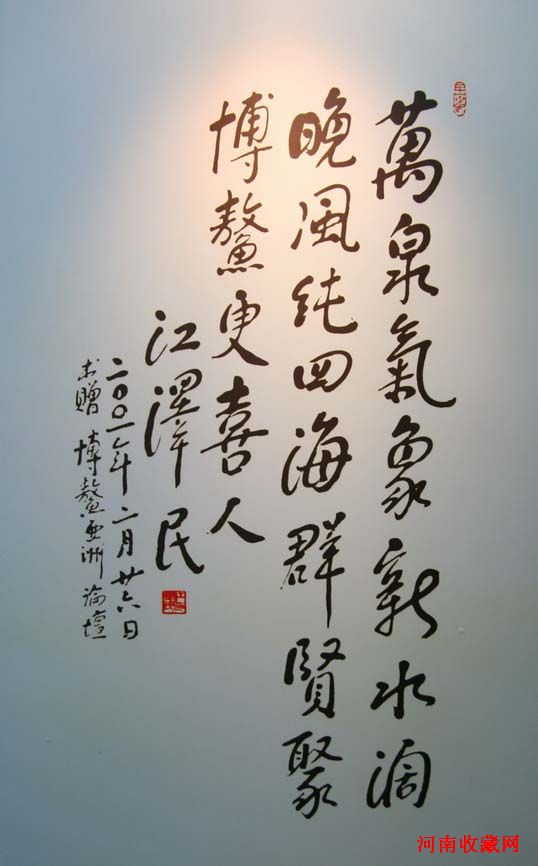 萬泉氣象新水濶
晚風純四海群賢聚
博鰲更喜人
江澤民
二〇〇一年二月廿六日
书贈 博鰲亞洲論壇
河南收藏网